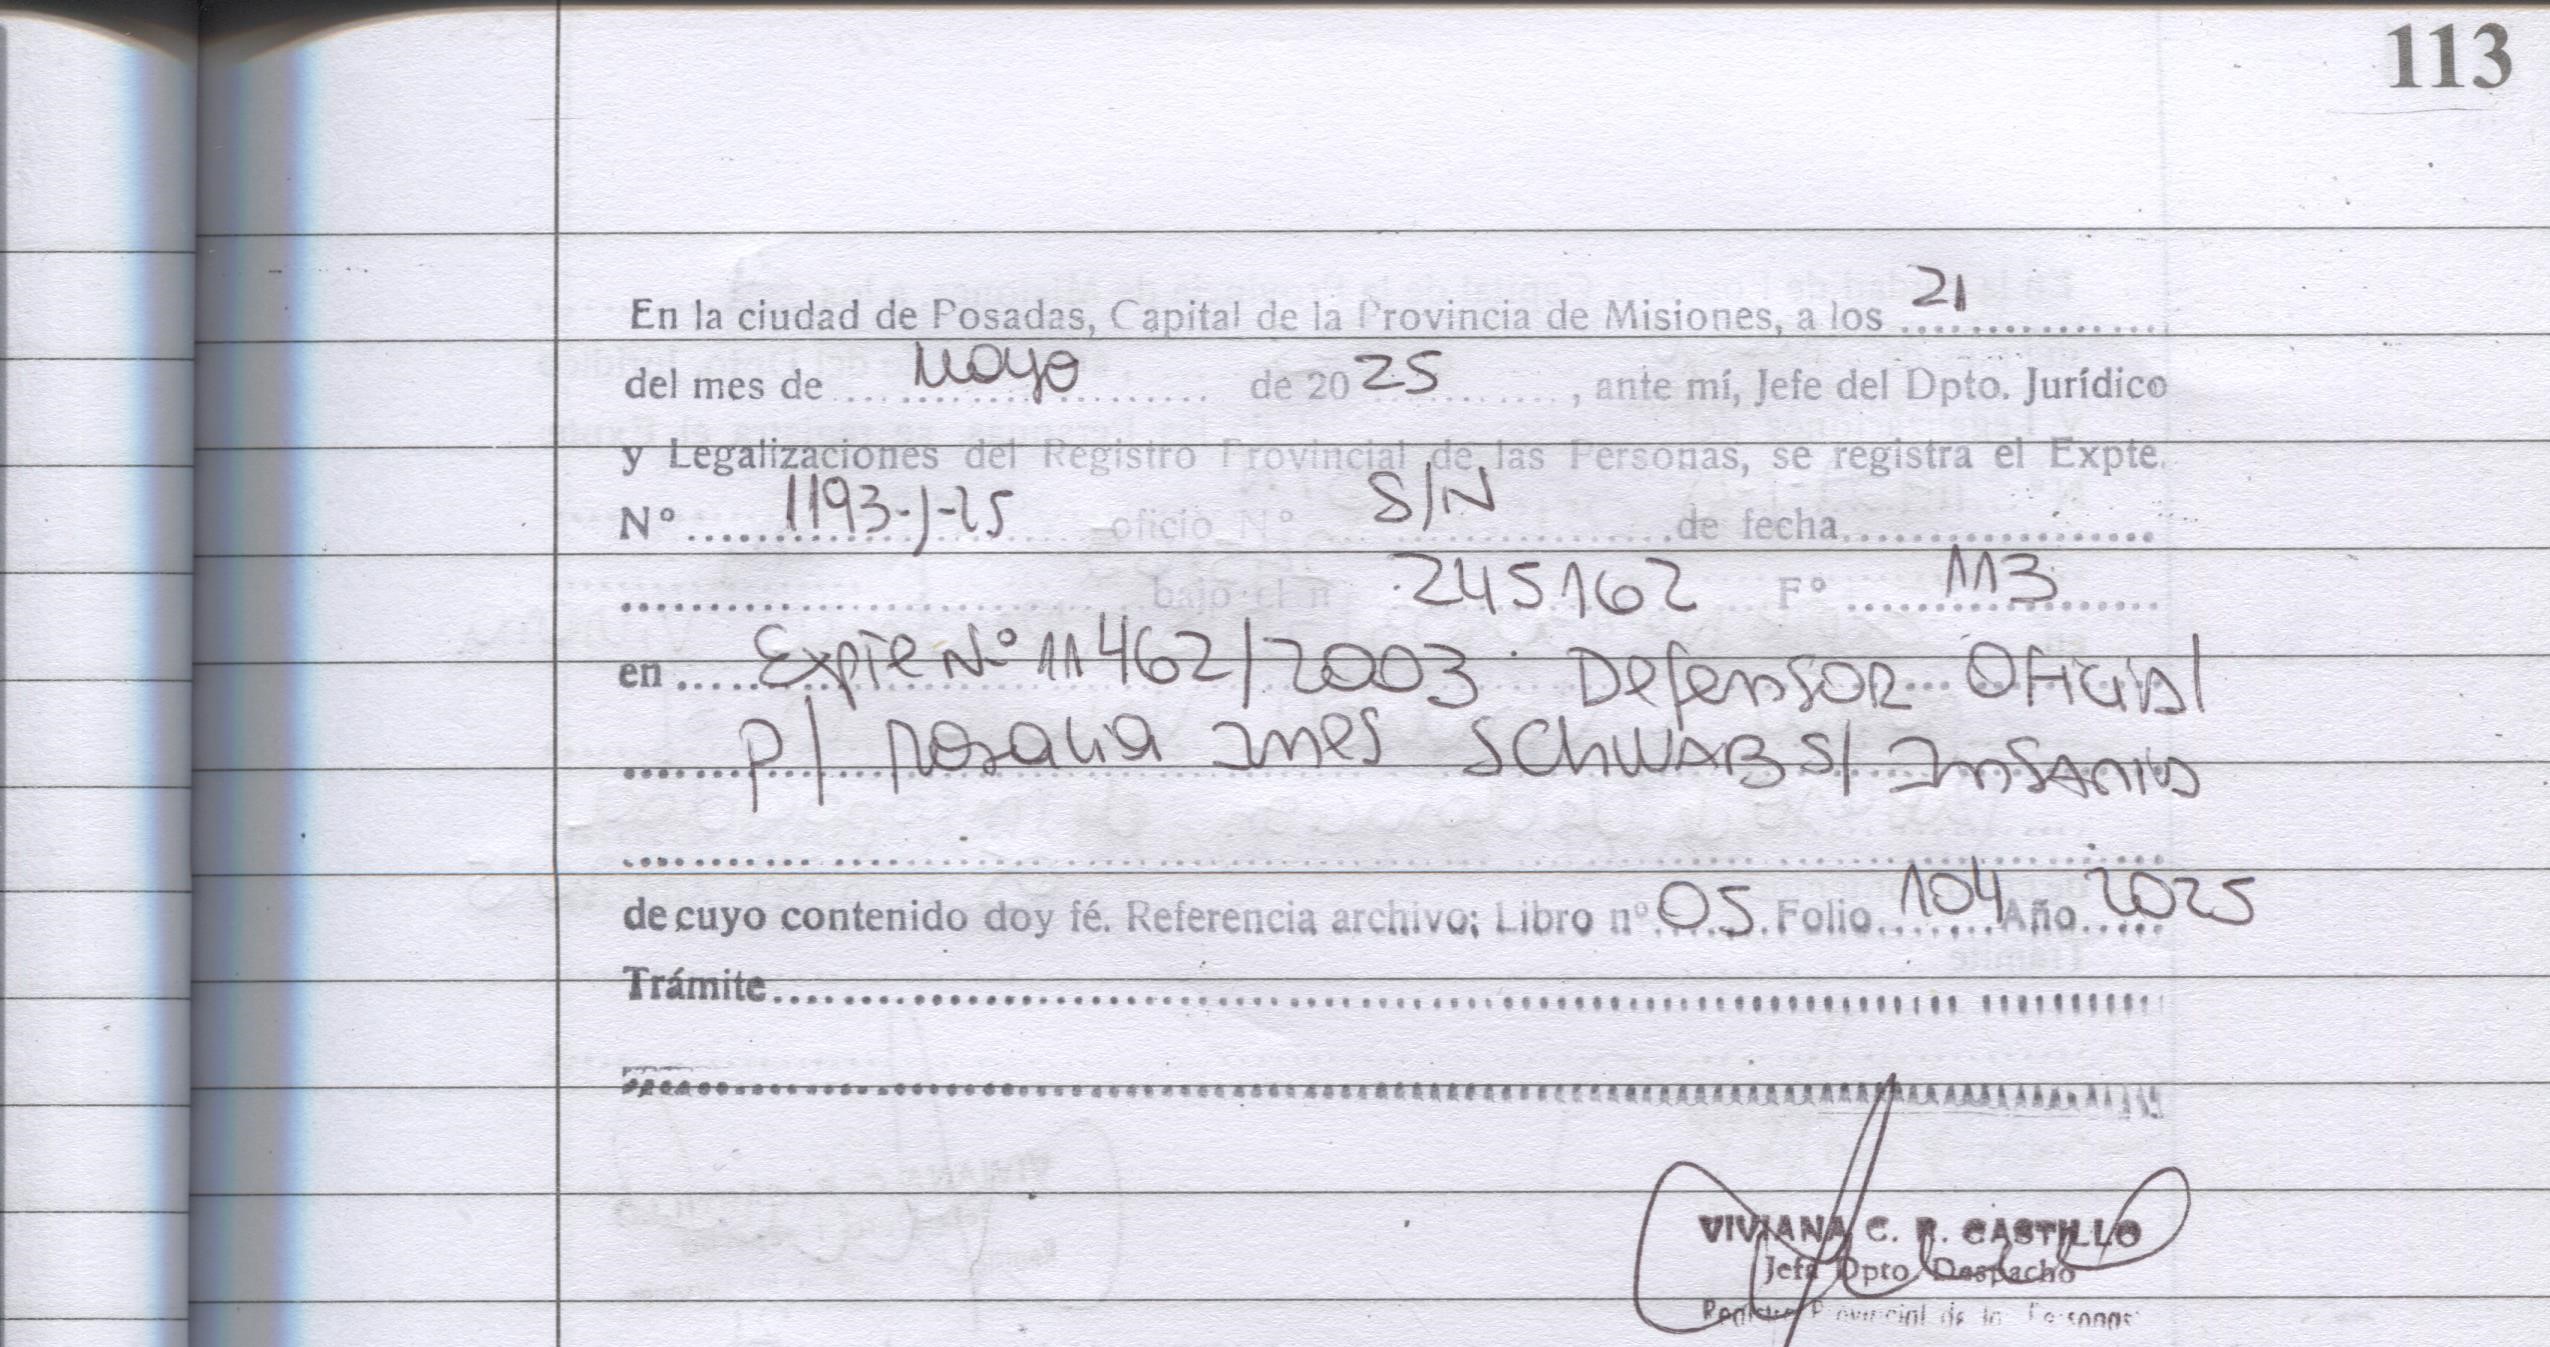 113
En la ciudad de Posadas, Capital de la Provincia de Misiones, a los 21
del mes de Mayo de 2025, ante mí, Jefe del Dpto. Jurídico
y Legalizaciones del Registro Provincial de las Personas, se registra el Expte.
Nº 1193-J-25 oficio Nº S/N de fecha
bajo el n 245162 Fº 113
en Expte Nº 11462/2003 Defensor Oficial
P/ Rosalia Ines SCHWAB S/ Insania
de cuyo contenido doy fé. Referencia archivo; Libro nº 05 Folio 104 Año 2025
Trámite
VIVIANA C. R. CASTILLO
Jefa Dpto. Despacho
Registro Provincial de las Personas